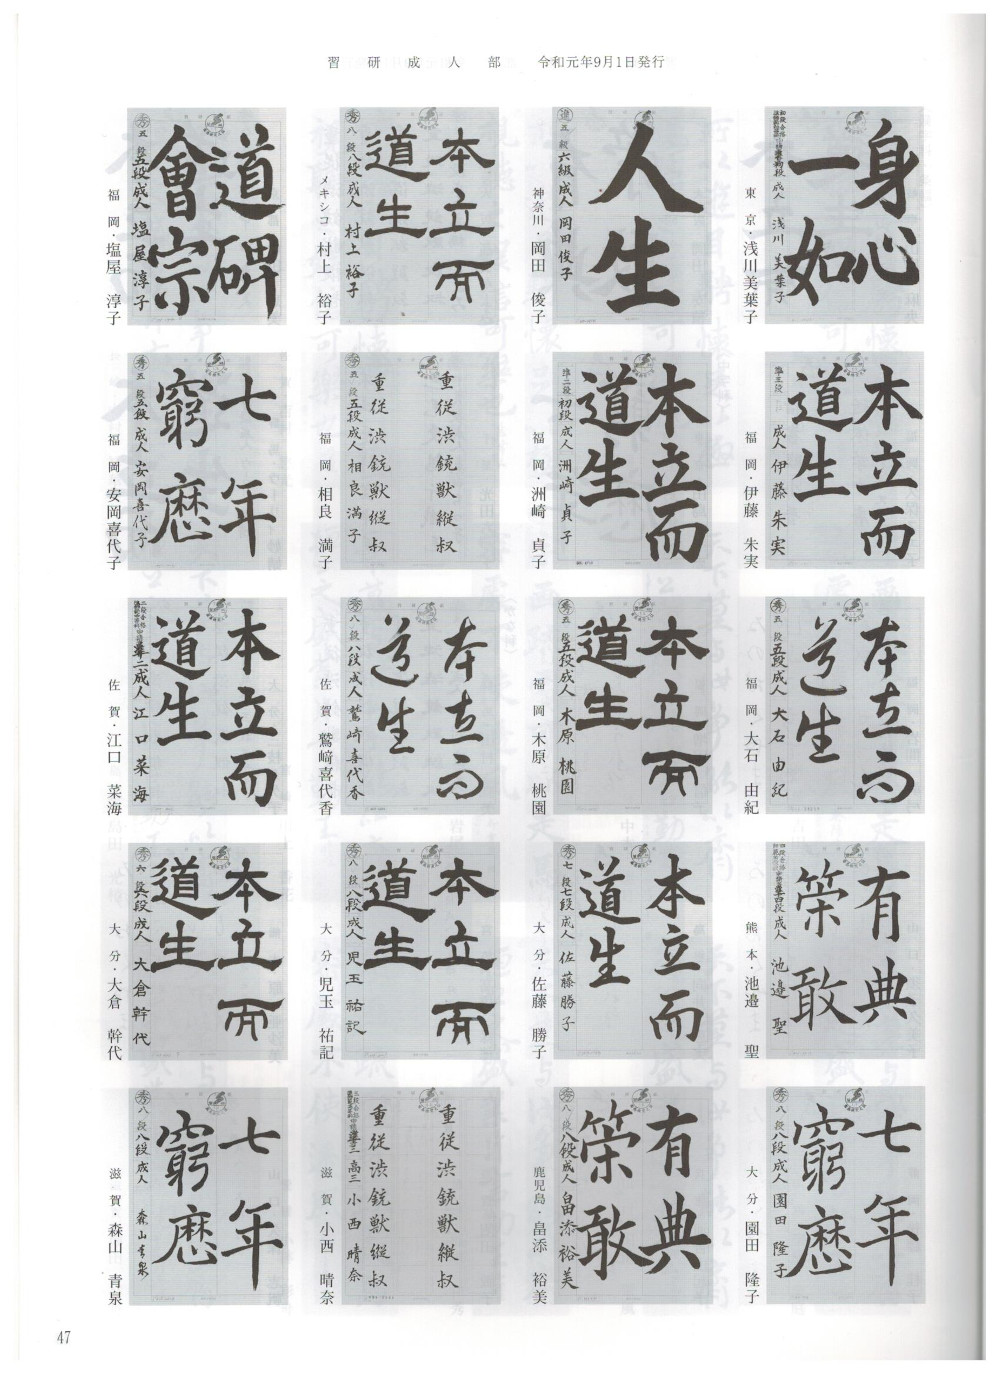 習研成人部　令和元年9月1日発行
身心
一如
成人 浅川 美葉子
東京・浅川美葉子
人生
進 五 段 六級 成人 岡田俊子
神奈川・岡田 俊子
本立而
道生
秀 八 段 八段 成人 村上裕子
メキシコ・村上 裕子
道碑
會宗
秀 五 段 五段 成人 塩屋淳子
福岡・塩屋 淳子
本立而
道生
準三段 成人 伊藤朱実
福岡・伊藤 朱実
本立而
道生
準二段 初段 成人 洲崎貞子
福岡・洲崎 貞子
重従渋銃獣縦叔
重従渋銃獣縦叔
秀 五 段 五段 成人 相良満子
福岡・相良 満子
七年
窮歴
秀 五 段 五段 成人 安岡喜代子
福岡・安岡喜代子
本立而
道生
秀 五 段 五段 成人 大石由紀
福岡・大石 由紀
本立而
道生
秀 五 段 五段 成人 木原桃園
福岡・木原 桃園
本立而
道生
秀 八 段 八段 成人 鷲崎喜代香
佐賀・鷲﨑喜代香
本立而
道生
準二 成人 江口菜海
佐賀・江口 菜海
有典
策敢
準四段 成人 池邉聖
熊本・池邉 聖
本立而
道生
秀 七 段 七段 成人 佐藤勝子
大分・佐藤 勝子
本立而
道生
秀 八 段 八段 成人 児玉祐記
大分・児玉 祐記
本立而
道生
秀 六 段 六段 成人 大倉幹代
大分・大倉 幹代
七年
窮歴
秀 八 段 八段 成人 園田隆子
大分・園田 隆子
有典
策敢
秀 八 段 八段 成人 畠添裕美
鹿児島・畠添 裕美
重従渋銃獣縦叔
重従渋銃獣縦叔
準三 高三 小西晴奈
滋賀・小西 晴奈
七年
窮歴
秀 八 段 八段 成人 森山青泉
滋賀・森山 青泉
47